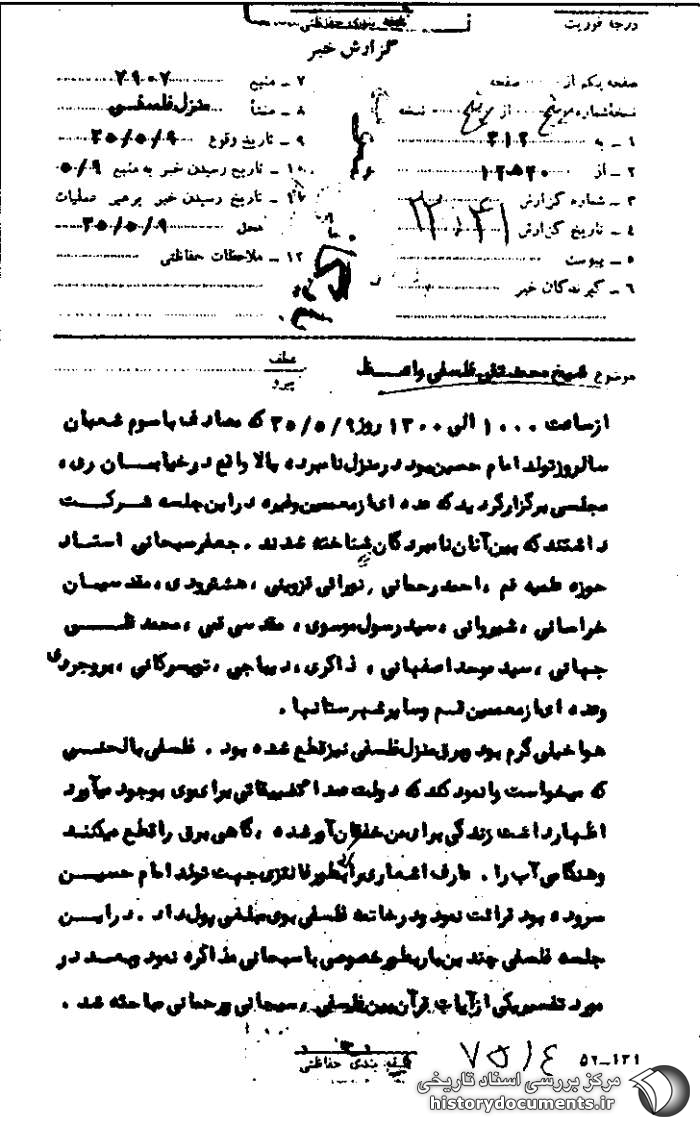 درجه فوریت
طبقه بندی حفاظتی
گزارش خبر
صفحه یکم از صفحه
نسخه شماره از نسخه
۱ ـ به ۳۱۲
۲ ـ از
۳ ـ شماره گزارش
۴ ـ تاریخ گزارش
۵ ـ پیوست
۶ ـ گیرندگان خبر
۷ ـ منبع ۷۹۰۷
۸ ـ منشأ منزل فلسفی
۹ ـ تاریخ وقوع ۳۵/۵/۹
۱۰ ـ تاریخ رسیدن خبر به منبع ۵/۹
۱۱ ـ تاریخ رسیدن خبر برهبر عملیات
محل ۳۵/۵/۹
۱۲ ـ ملاحظات حفاظتی
موضوع شیخ محمد تقی فلسفی واعظ
عطف
پیرو
از ساعت ۱۰۰۰ الی ۱۳۰۰ روز ۳۵/۵/۹ که مصادف با سوم شعبان
سالروز تولد امام حسین بود در منزل نامبرده بالا واقع در خیابان ری ،
مجلسی برگزار گردید که عده ای از معممین وغیره در این جلسه شرکت
داشتند که بین آنان نامبردگان شناخته شدند . جعفر سبحانی استاد
حوزه علمیه قم ، احمد رحمانی ، نورانی قزوینی ، هشترودی ، مقدسیان
خراسانی ، شیروانی ، سید رسول موسوی ، مقدسی قمی ، محمد تقی
جهانی ، سید موحد اصفهانی ، ذاکری ، دیباجی ، تویسرکانی ، بروجردی
وعده ای از معممین قم وسایر شهرستانها .
هوا خیلی گرم بود وبرق منزل فلسفی نیز قطع شده بود . فلسفی با لحنی
که میخواست وانمود کند که دولت عمدا تضییقاتی برای وی بوجود میآورد
اظهار داشت زندگی برای من خفقان آور شده ، گاهی برق را قطع میکنند
وهنگامی آب را . عارف اشعاری را بطور فانتزی جهت تولد امام حسین
سروده بود قرائت نمود ودر خاتمه فلسفی بوی مبلغی پول داد . در این
جلسه فلسفی چندین بار بطور خصوصی با سبحانی مذاکره نمود وبعد در
مورد تفسیر یکی از آیات قرآن بین فلسفی ، سبحانی ورحمانی مباحثه شد .
۵۲-۱۳۱
طبقه بندی حفاظتی
مرکز بررسی اسناد تاریخی
historydocuments.ir